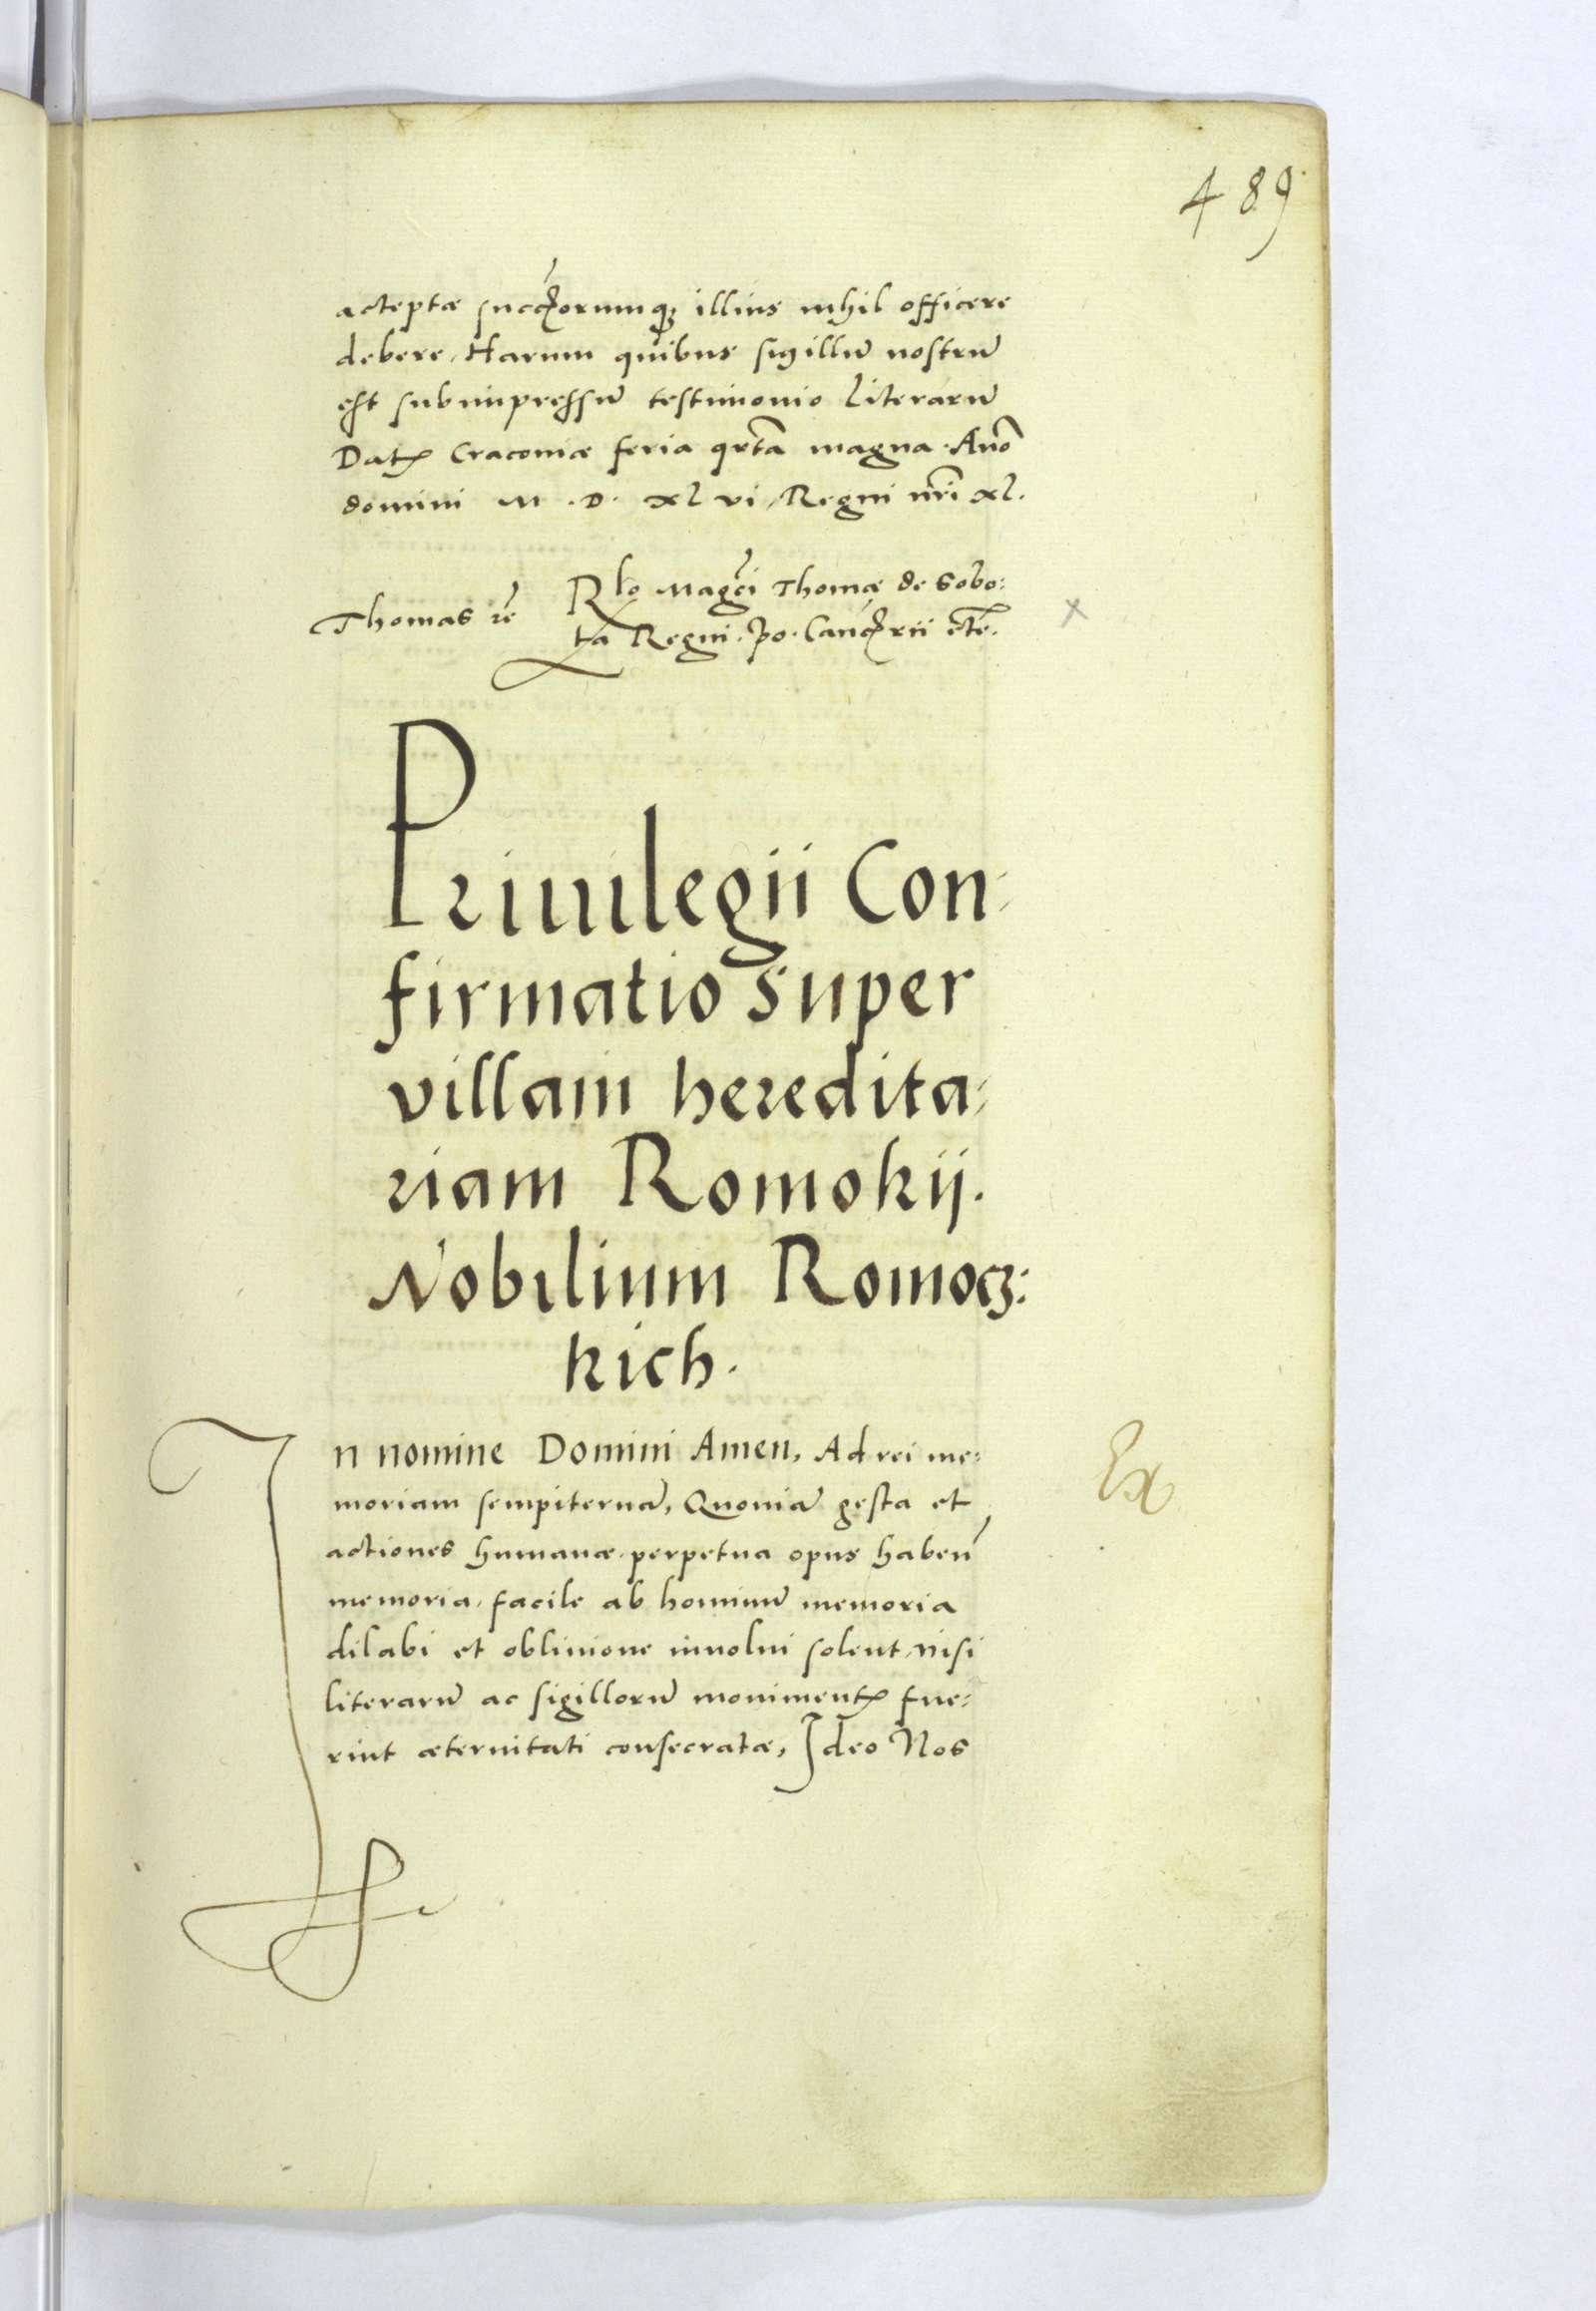 489
acceptæ succ̃orumq; illius nihil officere
debere. Harum quibus sigillũ nostrũ
est subimpressũ testimonio literarũ
Datꝭ Cracoviæ feria qrta magna. Anõ
domini M . D . xl vi, Regni nr̃i xl.
Thomas
Rlo Magci Thomæ de Sobo:
ta Regni . Po . Canc̃rii etc̃.
Priuilegii Con:
firmatio super
villam heredita:
riam Romokij.
Nobilium Romocz:
kich.
In nomine Domini Amen, Ad rei me:
moriam sempiternã, Quoniã gesta et
actiones humanæ perpetua opus habeñ
memoria, facile ab hominũ memoria
dilabi et obliuione inuolui solent, nisi
literarũ ac sigillorũ monimentꝭ fue:
rint æternitati consecratæ, Ideo Nos
Ex